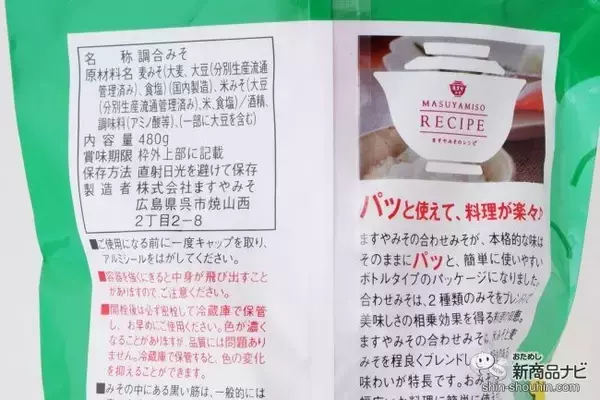 名称 調合みそ
原材料名 麦みそ(大麦、大豆(分別生産流通
管理済み)、食塩)(国内製造)、米みそ(大豆
(分別生産流通管理済み)、米、食塩)/酒精、
調味料(アミノ酸等)、(一部に大豆を含む)
内容量 480g
賞味期限 枠外上部に記載
保存方法 直射日光を避けて保存
製造者 株式会社ますやみそ
広島県呉市焼山西
2丁目2-8
■ご使用になる前に一度キャップを取り、
アルミシールをはがしてください。
■容器を強くにぎると中身が飛び出すこと
がありますので、ご注意ください。
■開栓後は必ず密栓して冷蔵庫で保管
し、お早めにご使用ください。色が濃く
なることがありますが、品質には問題あり
ません。冷蔵庫で保管すると、色の変化
を抑えることができます。
■みその中にある黒い筋は、一般的には
MASUYAMISO
RECIPE
ますやみそのレシピ
パッと使えて、料理が楽々♪
ますやみその合わせみそが、本格的な味は
そのままにパッと、簡単に使いやすい
ボトルタイプのパッケージになりました。
合わせみそは、2種類のみそをブレンド
美味しさの相乗効果を得る
ますやみその合わせみそ
みそを程良くブレンドし
味わいが特長です。おみ
幅広い料理に簡単に使
おためし
新商品ナビ
shin-shouhin.com